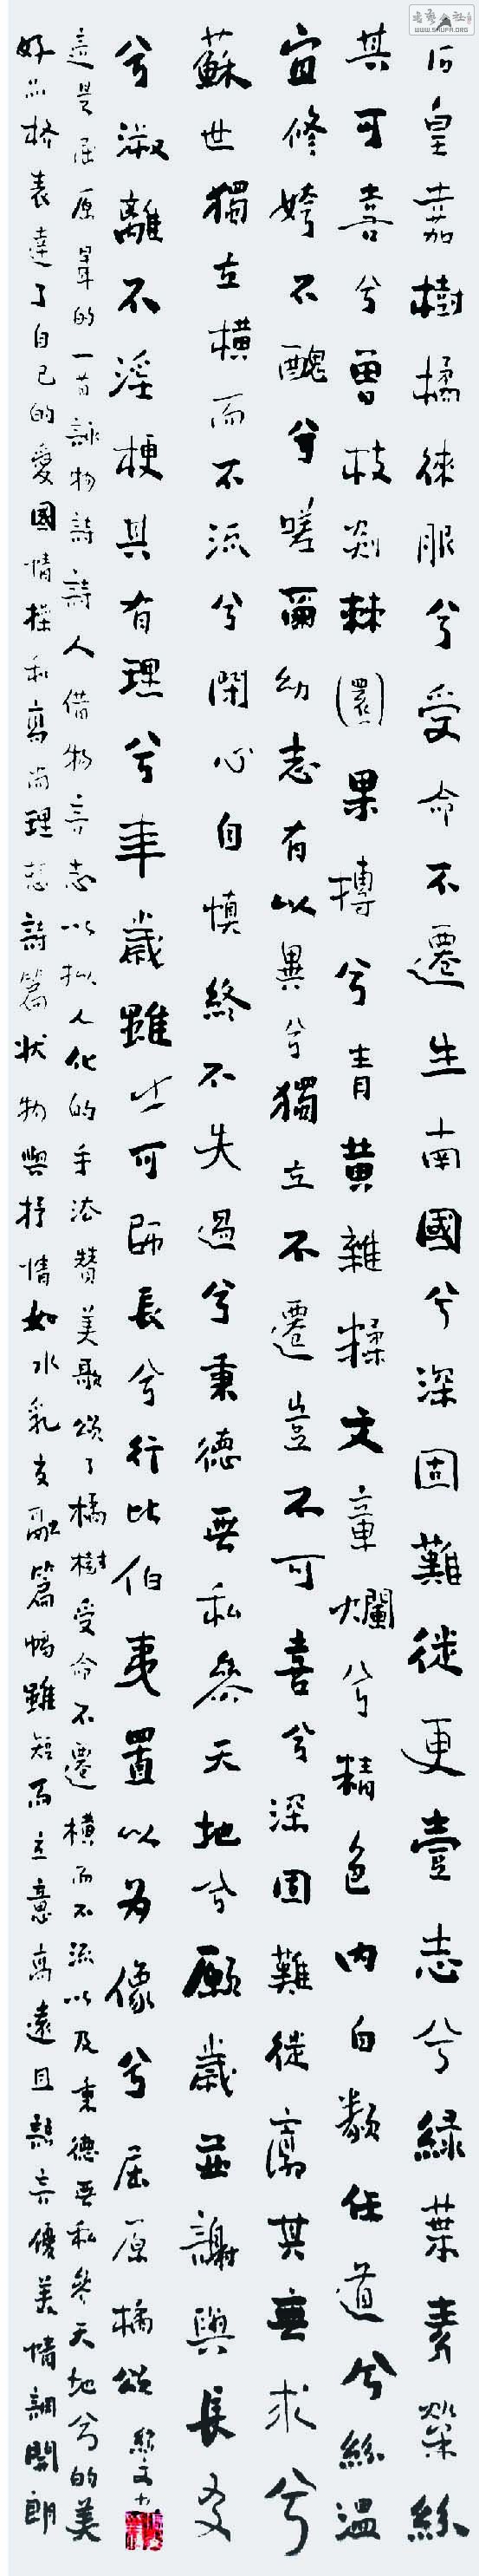 后皇嘉樹橘徠服兮受命不遷生南國兮深固難徙更壹志兮綠葉素榮絲
其可喜兮曾枝剡棘圜果摶兮青黃雜糅文章爛兮精色內白類任道兮絲溫
宜修姱不醜兮嗟爾幼志有以異兮獨立不遷豈不可喜兮深固難徙廓其無求兮
蘇世獨立橫而不流兮閉心自慎終不失過兮秉德無私參天地兮願歲並謝與長友
兮淑離不淫梗其有理兮年歲雖少可師長兮行比伯夷置以為像兮 屈原橘頌
這是屈原早年的一首詠物詩詩人借物言志以拟人化的手法贊美歌頌了橘樹受命不遷橫而不流以及秉德無私參天地兮的美
好品格表達了自己的愛國情操和高尚理想詩篇狀物與抒情如水乳交融篇幅雖短而立意高遠且語言優美情調開朗
WWW.SHUFA.ORG